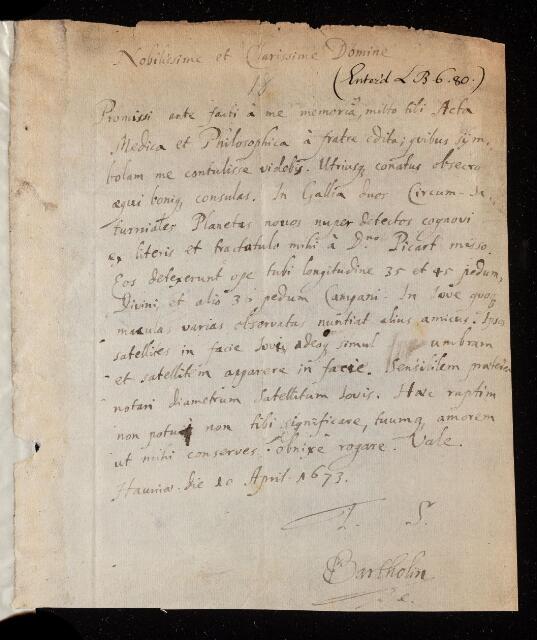 Nobilissime et Clarissime Domine
(Enter'd L.B. 6. 80.)
Promissi ante facti à me memoriâ, mitto tibi Acta
Medica et Philosophica à fratre edita; quibus sym-
bolam me contulisse videbis. Utriusq; conatus obsecro
æqui boniq; consulas. In Gallia duos Circum-Sa-
turniales Planetas novos nuper detectos cognovi
ex literis et tractatulo mihi à Dno Picart misso.
Eos detexerunt ope tubi longitudine 35 et 45 pedum,
Divini, et alio 3 pedum Campani. In Iove quoq;
maculas varias observatas nuntiat alius amicus. Ipsos
satellites in facie Iovis, adeoq simul umbram
et satellitem apparere in facie. Sensibilem præterea
notari diametrum Satellitum Iovis. Hæc raptim
non potui non tibi significare, tuumq; amorem
ut mihi conserves obnixè rogare. Vale.
Hauniæ die 10 April 1673.
T. S.
Bartholin